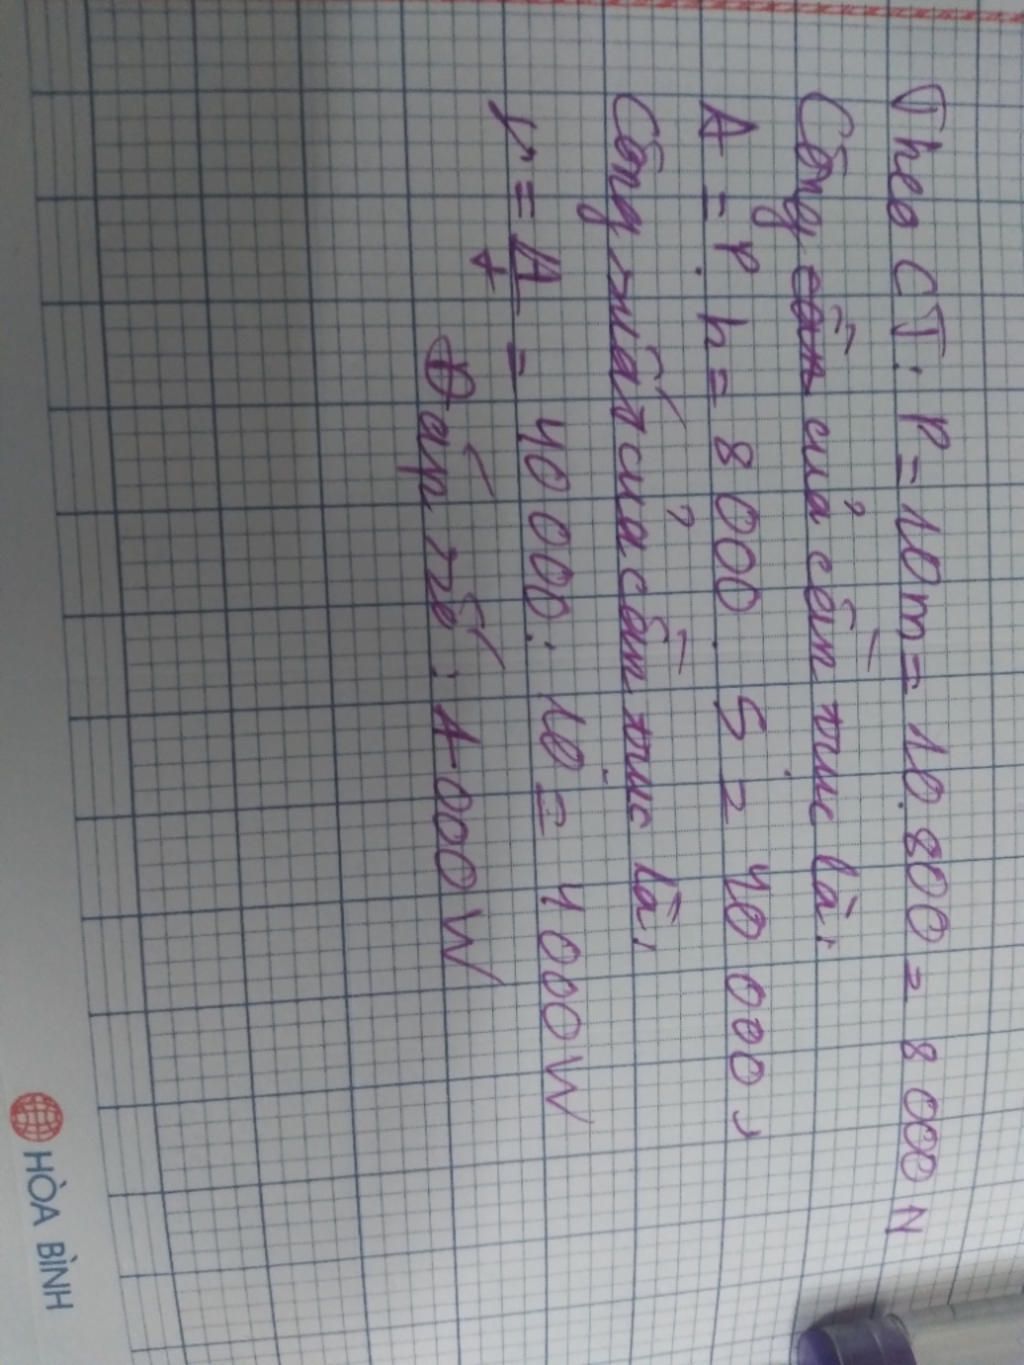 Theo CT: P = 10m = 10.800 = 8000 N
Công của cần trục là:
A = P.h = 8000.5 = 40 000 J
Công suất của cần trục là:
p = A/t = 40 000:10 = 4000W
Đáp số: 4000W
HÒA BÌNH